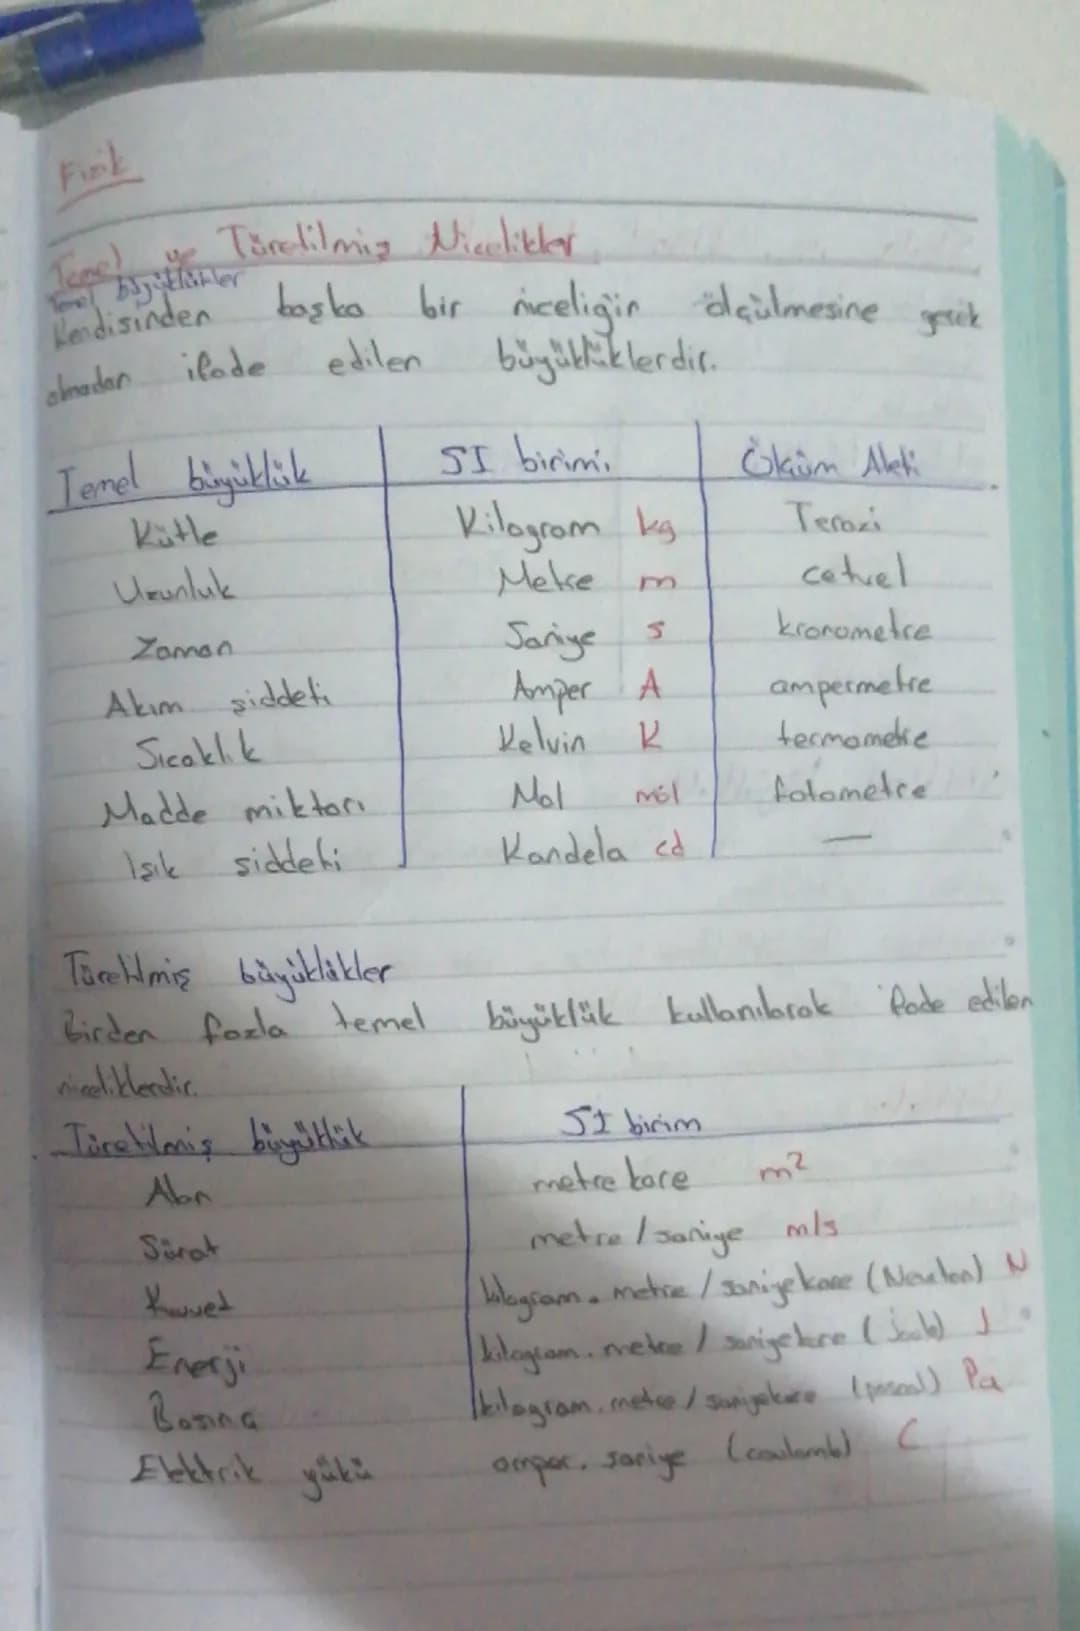 Fizik
Temel ve Türetilmiş Nicelikler
Temel büyüklükler
Kendisinden başka bir niceliğin ölçülmesine gerek
olmadan ifade edilen büyüklüklerdir.
Temel büyüklük SI birimi Ölçüm Aleti
Kütle Kilogram kg Terazi
Uzunluk Metre m cetvel
Zaman Saniye s kronometre
Akım şiddeti Amper A ampermetre
Sıcaklık Kelvin K termometre
Madde miktarı Mol mol fotometre
Işık şiddeti Kandela cd —
Türetilmiş büyüklükler
Birden fazla temel büyüklük kullanılarak ifade edilen
niceliklerdir.
Türetilmiş büyüklük SI birim
Alan metre kare m²
Sürat metre / saniye m/s
Kuvvet kilogram . metre / saniyekare (Newton) N
Enerji kilogram . metre / saniyekare (Joule) J
Basınç kilogram . metre / saniyekare (pascal) Pa
Elektrik yükü amper . saniye (coulomb) C